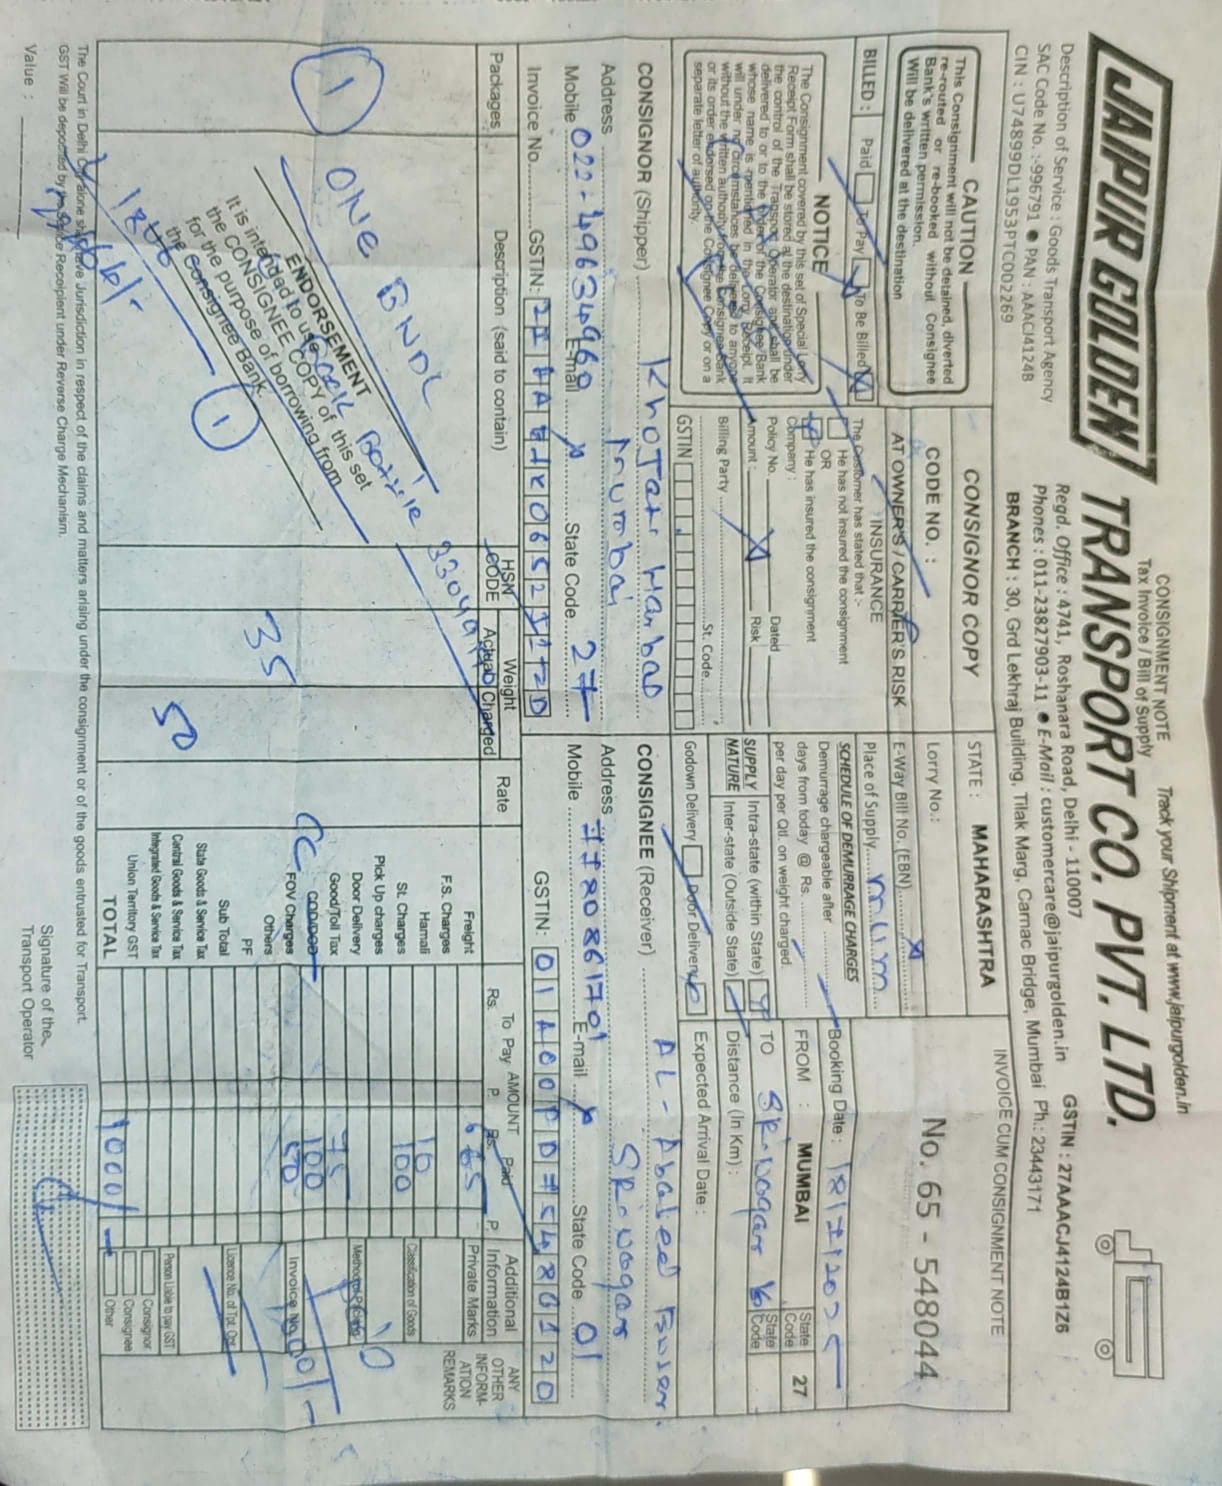 CONSIGNMENT NOTE
Tax Invoice / Bill of Supply
Track your Shipment at www.jaipurgolden.in
JAIPUR GOLDEN TRANSPORT CO. PVT. LTD.
Regd. Office : 4741, Roshanara Road, Delhi - 110007
GSTIN : 27AAACJ4124B1Z6
Description of Service : Goods Transport Agency
Phones : 011-23827903-11 ● E-Mail : customercare@jaipurgolden.in
SAC Code No. : 996791 ● PAN : AAACJ4124B
BRANCH : 30, Grd Lekhraj Building, Tilak Marg, Carnac Bridge, Mumbai Ph.: 23443171
CIN : U74899DL1953PTC002269
CAUTION
This Consignment will not be detained, diverted
re-routed or re-booked without Consignee
Bank's written permission.
Will be delivered at the destination
BILLED : Paid To Pay To Be Billed
NOTICE
The Consignment covered by this set of Special Lorry
Receipt Form shall be stored at the destination under
the control of the Transport Operator and shall be
delivered to or to the order of the Consignee Bank
whose name is mentioned in the Lorry Receipt. It
will under no circumstances be delivered to anyone
without the written authority from the Consignee Bank
or its order endorsed on the Consignee Copy or on a
separate letter of authority.
CONSIGNOR COPY
CODE NO. :
AT OWNER'S / CARRIER'S RISK
INSURANCE
The Customer has stated that :-
He has not insured the consignment
OR
He has insured the consignment
Company :
Policy No. Dated
Amount : Risk
Billing Party
St. Code
GSTIN
STATE : MAHARASHTRA
Lorry No.:
E-Way Bill No. (EBN)
Place of Supply mum
SCHEDULE OF DEMURRAGE CHARGES
Demurrage chargeable after
days from today @ Rs.
per day per Qtl. on weight charged.
SUPPLY Intra-state (within State)
NATURE Inter-state (Outside State)
Godown Delivery Door Delivery
INVOICE CUM CONSIGNMENT NOTE
No. 65 - 548044
Booking Date :
FROM : MUMBAI State Code 27
TO Srinagar State Code
Distance (In Km) :
Expected Arrival Date :
CONSIGNOR (Shipper) Khojati Harbal
Address Mumbai
Mobile 022-49634960 E-mail State Code 27
Invoice No. GSTIN:
CONSIGNEE (Receiver)
Address Srinagar
Mobile E-mail State Code 01
GSTIN:
Packages
Description (said to contain)
HSN CODE
Weight
Actual Charged
Rate
AMOUNT
To Pay Paid
Rs. P. Rs. P.
Additional Information
ANY OTHER INFORMATION REMARKS
1
ONE BNDL
35
50
ENDORSEMENT
It is intended to use
the CONSIGNEE COPY of this set
for the purpose of borrowing from
the Consignee Bank.
1
Freight 665
F.S. Charges
Hamali 10
St. Charges 100
Pick Up charges
Door Delivery
Good/Toll Tax 75
COD/DOD CC 100
FOV Charges 50
Others
PF
Sub Total
State Goods & Service Tax
Central Goods & Service Tax
Integrated Goods & Service Tax
Union Territory GST
TOTAL 1000/-
Private Marks
Classification of Goods
Method of Packing
Invoice No.
Licence No. of Tpt. Opt.
Person Liable to pay GST
Consignor
Consignee
Other
The Court in Delhi City alone shall have Jurisdiction in respect of the claims and matters arising under the consignment or of the goods entrusted for Transport.
GST Will be deposited by the Service Receipient under Reverse Charge Mechanism.
Value :
Signature of the
Transport Operator